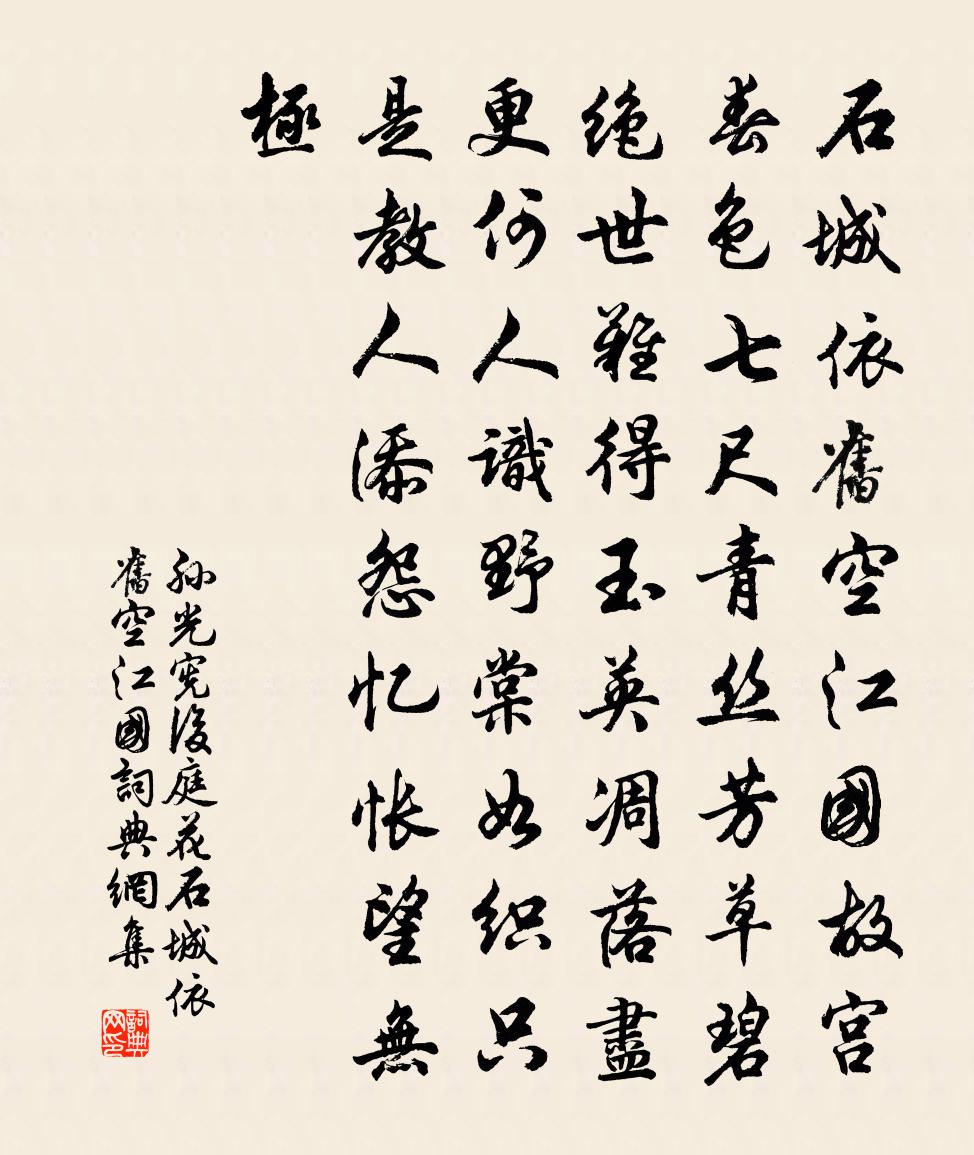 石城依舊空江國故宮
春色七尺青丝芳草碧
绝世難得玉英凋落盡
更何人識野棠如织只
是教人添怨忆怅望無
極
孙光宪後庭花石城依
舊空江國詞典網集
詞典网印